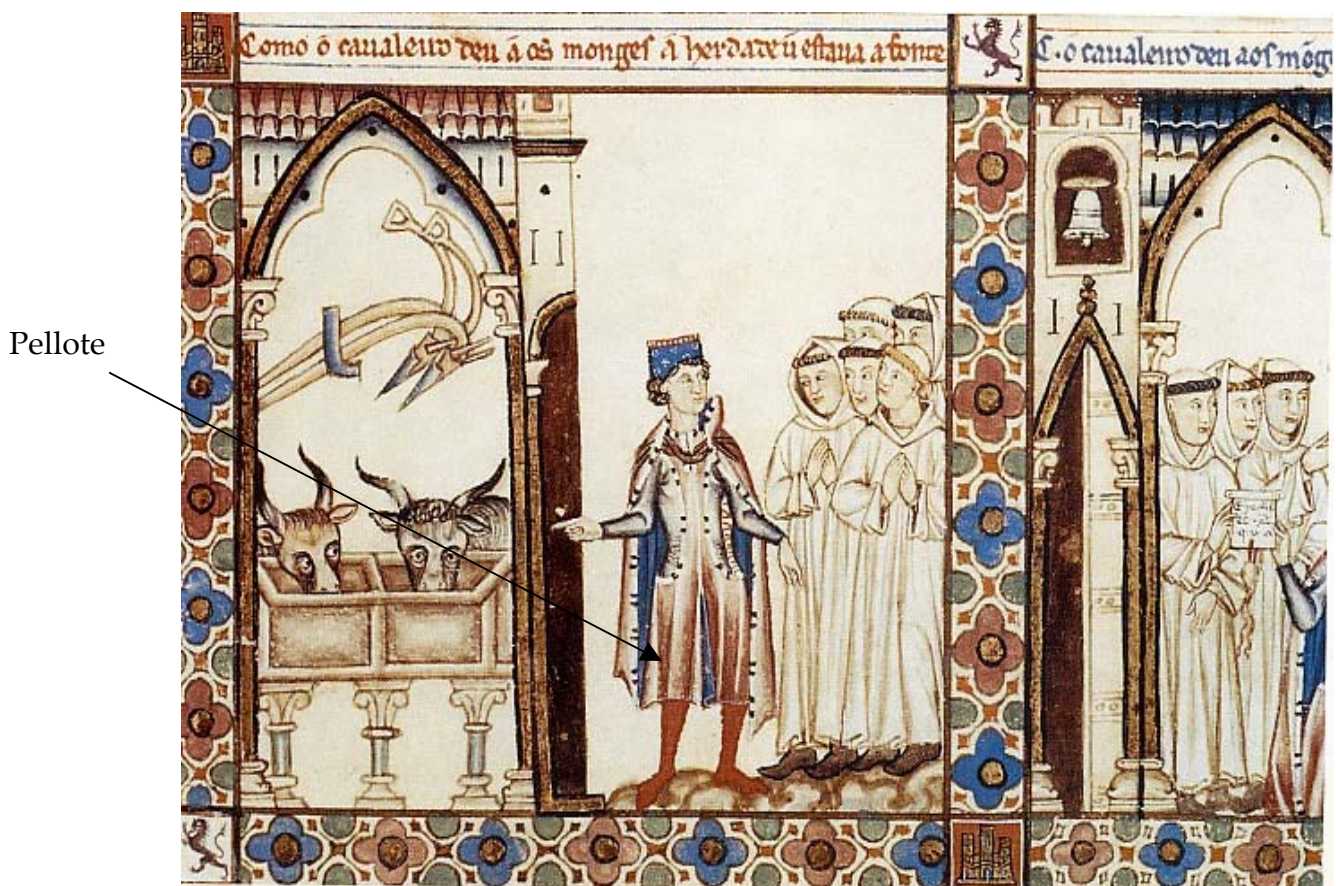 Como o caualeiro deu a os monges a herdade u estaua a fonte
C. o caualeiro deu aos mõg
Pellote